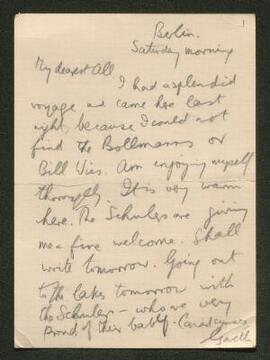 1
Berlin.
Saturday morning
My dearest All,
I had a splendid
voyage and came here last
night, because I could not
find the Bollmanns or
Bill Vies. Am enjoying myself
thoroughly. It is very warm
here. The Schusters are giving
me a fine welcome. Shall
write tomorrow. Going out
to the lakes tomorrow with
the Schusters – who are very
proud of their baby.